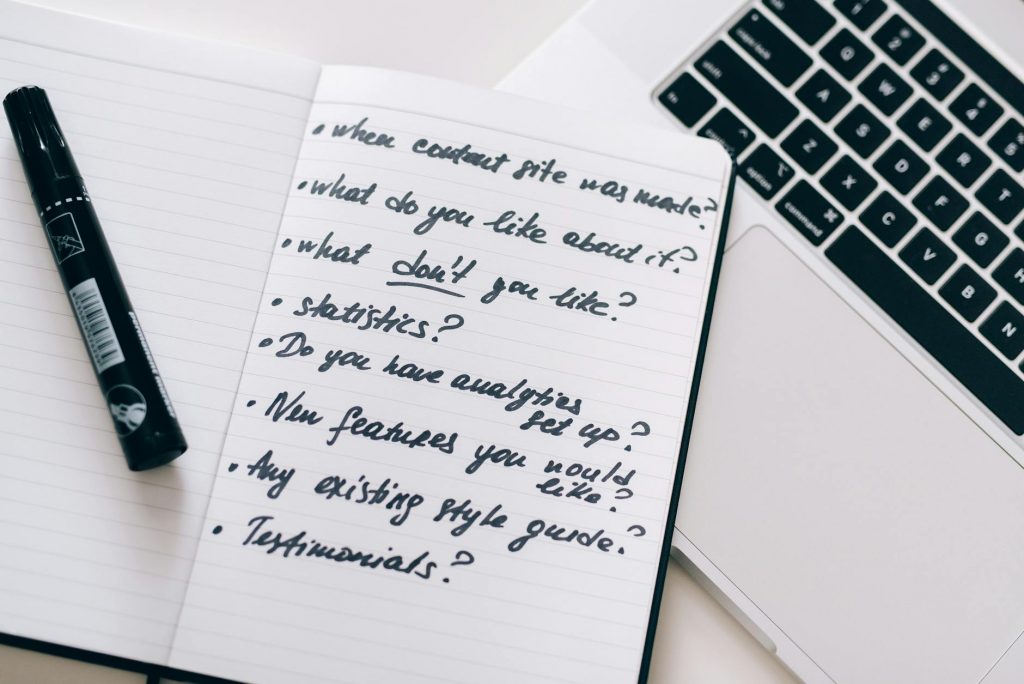 • when content site was made?
• what do you like about it?
• what don't you like?
• statistics?
• Do you have analytics
set up?
• New features you would
like?
• Any existing style guide?
• Testimonials?
Q
W
E
R
T
A
S
D
F
G
H
Z
X
C
V
B
N
option
command ⌘